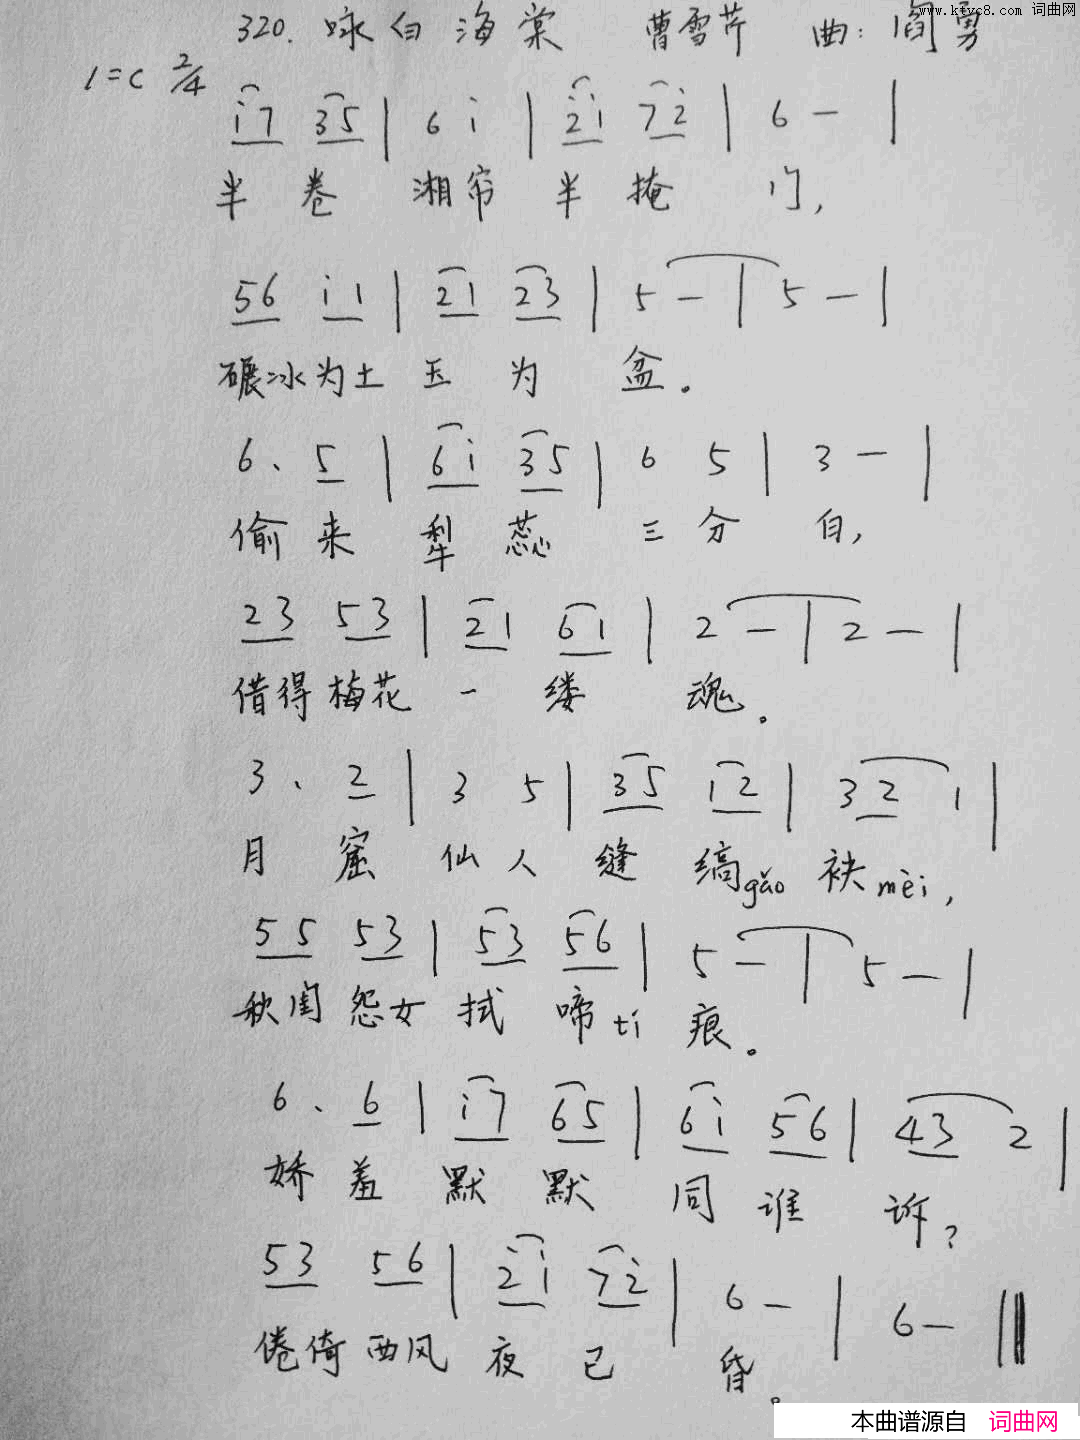 www.ktvc8.com 词曲网
320. 咏白海棠 曹雪芹 曲: 阎勇
1=C 2/4
i7 35 | 6 i | 2i 72 | 6 - |
半卷湘帘半掩门,
56 i1 | 21 23 | 5 - | 5 - |
碾冰为土玉为盆。
6. 5 | 6i 35 | 6 5 | 3 - |
偷来犁蕊三分白,
23 53 | 21 61 | 2 - | 2 - |
借得梅花一缕魂。
3. 2 | 3 5 | 35 12 | 32 1 |
月窟仙人缝缟gǎo袂mèi,
55 53 | 53 56 | 5 - | 5 - |
秋闺怨女拭啼tí痕。
6. 6 | i7 65 | 6i 56 | 43 2 |
娇羞默默同谁诉?
53 56 | 2i 72 | 6 - | 6 - ‖
倦倚西风夜已昏。
本曲谱源自 词曲网